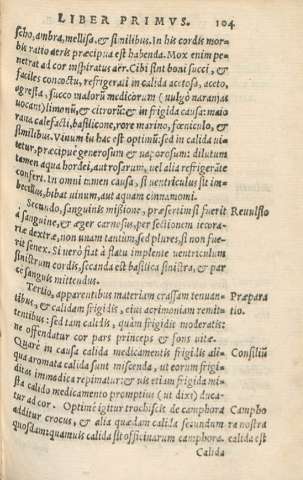 LIBER PRIMVS. 104
scho, ambra, mellisa, & similibus. In his cordis mor-
bis ratio aëris præcipua est habenda. Mox enim pe-
netrat ad cor inspiratus aër. Cibi sint boni succi, &
faciles concoctu, refrigerati in calida acetosa, aceto,
agresta, succo malorũ medicorum (uulgò naranjas
uocant) limonũ, & citrorũ: & in frigida causa: maio
rana calefacti, basilicone, rore marino, fœniculo, &
similibus. Vinum iu hac est optimũ: sed in calida ui-
tetur, præcipuè generosum & uaporosum: dilutum
tamen aqua hordei, autrosarum, uel alia refrigerãte
confert. In omni tamen causa, si uentriculus sit im-
becillus, bibat uinum, aut aquam cinnamomi.
Secundo, sanguinis missione, præsertim si fuerit Reuulsio
à sanguine, & æger carnosus, per sectionem iecora-
riæ dextræ, non unam tantùm, sed plures, si non fue-
rit senex. Si uerò fiat à flatu implente uentriculum
sinistrum cordis, secanda est basilica sinistra, & par
cè sanguis mittendus.
Tertio, apparentibus materiam crassam tenuan- Præpara
tibus, & calidam frigidis, eiusq́ue acrimoniam remitt- tio.
tentibus: sed tam calidis, quàm frigidis moderatis:
ne offendatur cor pars princeps & fons uitæ.
Quare in causa calida medicamentis frigidis ali- Consiliũ
qua aromata calida sunt miscenda, ut eorum frigi-
ditas immodica repimatur: & uis etiam frigida mi-
sta calido medicamento promptius (ut dixi) duca-
tur ad cor. Optimè igitur trochiscis de camphora Campho
additur crocus, & alia quædam calida secundum ra nostra
quosdam: quamuis calida sit officinarum camphora. calida est
Calida